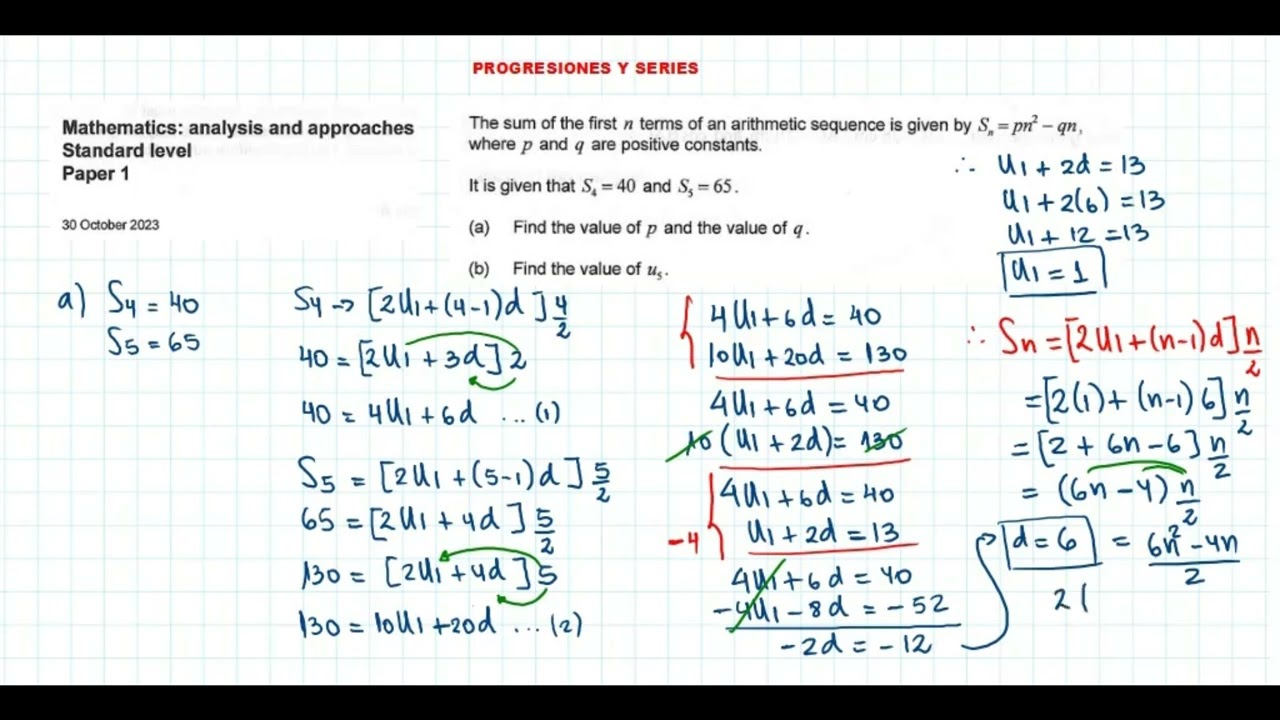 PROGRESIONES Y SERIES
Mathematics: analysis and approaches
Standard level
Paper 1
30 October 2023
The sum of the first n terms of an arithmetic sequence is given by Sₙ = pn² − qn,
where p and q are positive constants.
It is given that S₄ = 40 and S₅ = 65.
(a) Find the value of p and the value of q.
(b) Find the value of u₅.
a) S4 = 40
S5 = 65
S4 → [2U1 + (4-1)d] 4/2
40 = [2U1 + 3d] 2
40 = 4U1 + 6d ... (1)
S5 = [2U1 + (5-1)d] 5/2
65 = [2U1 + 4d] 5/2
130 = [2U1 + 4d] 5
130 = 10U1 + 20d ... (2)
4U1 + 6d = 40
10U1 + 20d = 130
4U1 + 6d = 40
10 (U1 + 2d) = 130
4U1 + 6d = 40
-4 U1 + 2d = 13
4U1 + 6d = 40
-4U1 - 8d = -52
-2d = -12
d = 6
∴ U1 + 2d = 13
U1 + 2(6) = 13
U1 + 12 = 13
U1 = 1
∴ Sn = [2U1 + (n-1)d] n/2
= [2(1) + (n-1) 6] n/2
= [2 + 6n - 6] n/2
= (6n - 4) n/2
= 6n² - 4n / 2
2(